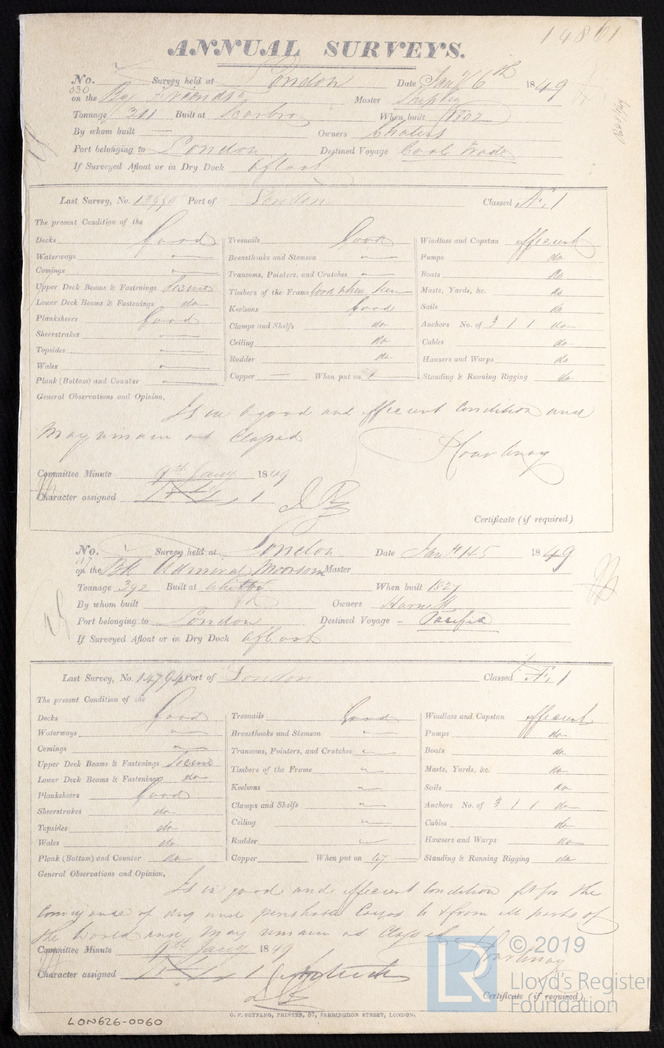 14861
ANNUAL SURVEYS.
No. Survey held at London Date Jany 6th 1849
on the Bg Friends Master Shipley
Tonnage 301 Built at Scarbro When built 1802
By whom built — Owners Chaters
Port belonging to London Destined Voyage Coal Trade
If Surveyed Afloat or in Dry Dock afloat
Last Survey, No. Port of London Classed Æ 1
The present Condition of the
Decks Good
Waterways —
Comings —
Upper Deck Beams & Fastenings Secure
Lower Deck Beams & Fastenings do
Planksheers Good
Sheerstrakes —
Topsides —
Wales —
Plank (Bottom) and Counter —
Treenails Good
Breasthooks and Stemson —
Transoms, Pointers, and Crutches —
Timbers of the Frame Good when seen
Keelsons Good
Clamps and Shelfs do
Ceiling do
Rudder do
Copper — When put on
Windlass and Capstan efficient
Pumps do
Boats do
Masts, Yards, &c. do
Sails do
Anchors No. of 3 1 1 do
Cables do
Hawsers and Warps do
Standing & Running Rigging do
General Observations and Opinion,
Is in a good and efficient Condition and
May remain as Classed
Committee Minute 9th Jany 1849
Character assigned Æ 1
Certificate (if required)
No. Survey held at London Date Jan 4th & 5 1849
on the Bk Admiral Moorsom Master
Tonnage 392 Built at Whitby When built 1827
By whom built Owners
Port belonging to London Destined Voyage - Pacific
If Surveyed Afloat or in Dry Dock afloat
Last Survey, No. 14794 Port of London Classed Æ 1
The present Condition of the
Decks Good
Waterways —
Comings —
Upper Deck Beams & Fastenings Secure
Lower Deck Beams & Fastenings do
Planksheers Good
Sheerstrakes do
Topsides do
Wales do
Plank (Bottom) and Counter do
Treenails Good
Breasthooks and Stemson —
Transoms, Pointers, and Crutches —
Timbers of the Frame —
Keelsons —
Clamps and Shelfs —
Ceiling —
Rudder —
Copper When put on 47
Windlass and Capstan efficient
Pumps do
Boats do
Masts, Yards, &c. do
Sails do
Anchors No. of 3 1 1 do
Cables do
Hawsers and Warps do
Standing & Running Rigging do
General Observations and Opinion,
Is in good and efficient Condition fit for the
Conveyance of dry and perishable Cargos to & from all parts of
the World and May remain as Classed
Committee Minute 9th Jany 1849
Character assigned Æ 1
Certificate (if required),
LON626-0060
PRINTER, 57, FARRINGDON STREET, LONDON.
LR © 2019
Lloyd's Register
Foundation